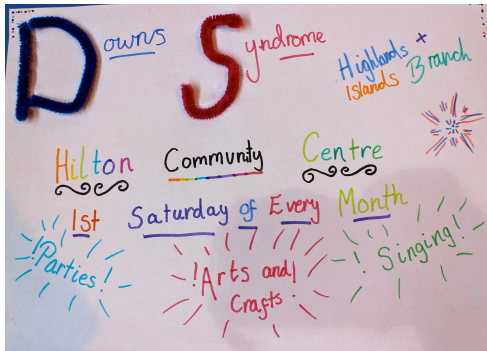 Downs Syndrome
Highlands +
Islands Branch
Hilton Community Centre
1st Saturday of Every Month
!Parties!
!Arts and!
Crafts
! Singing!